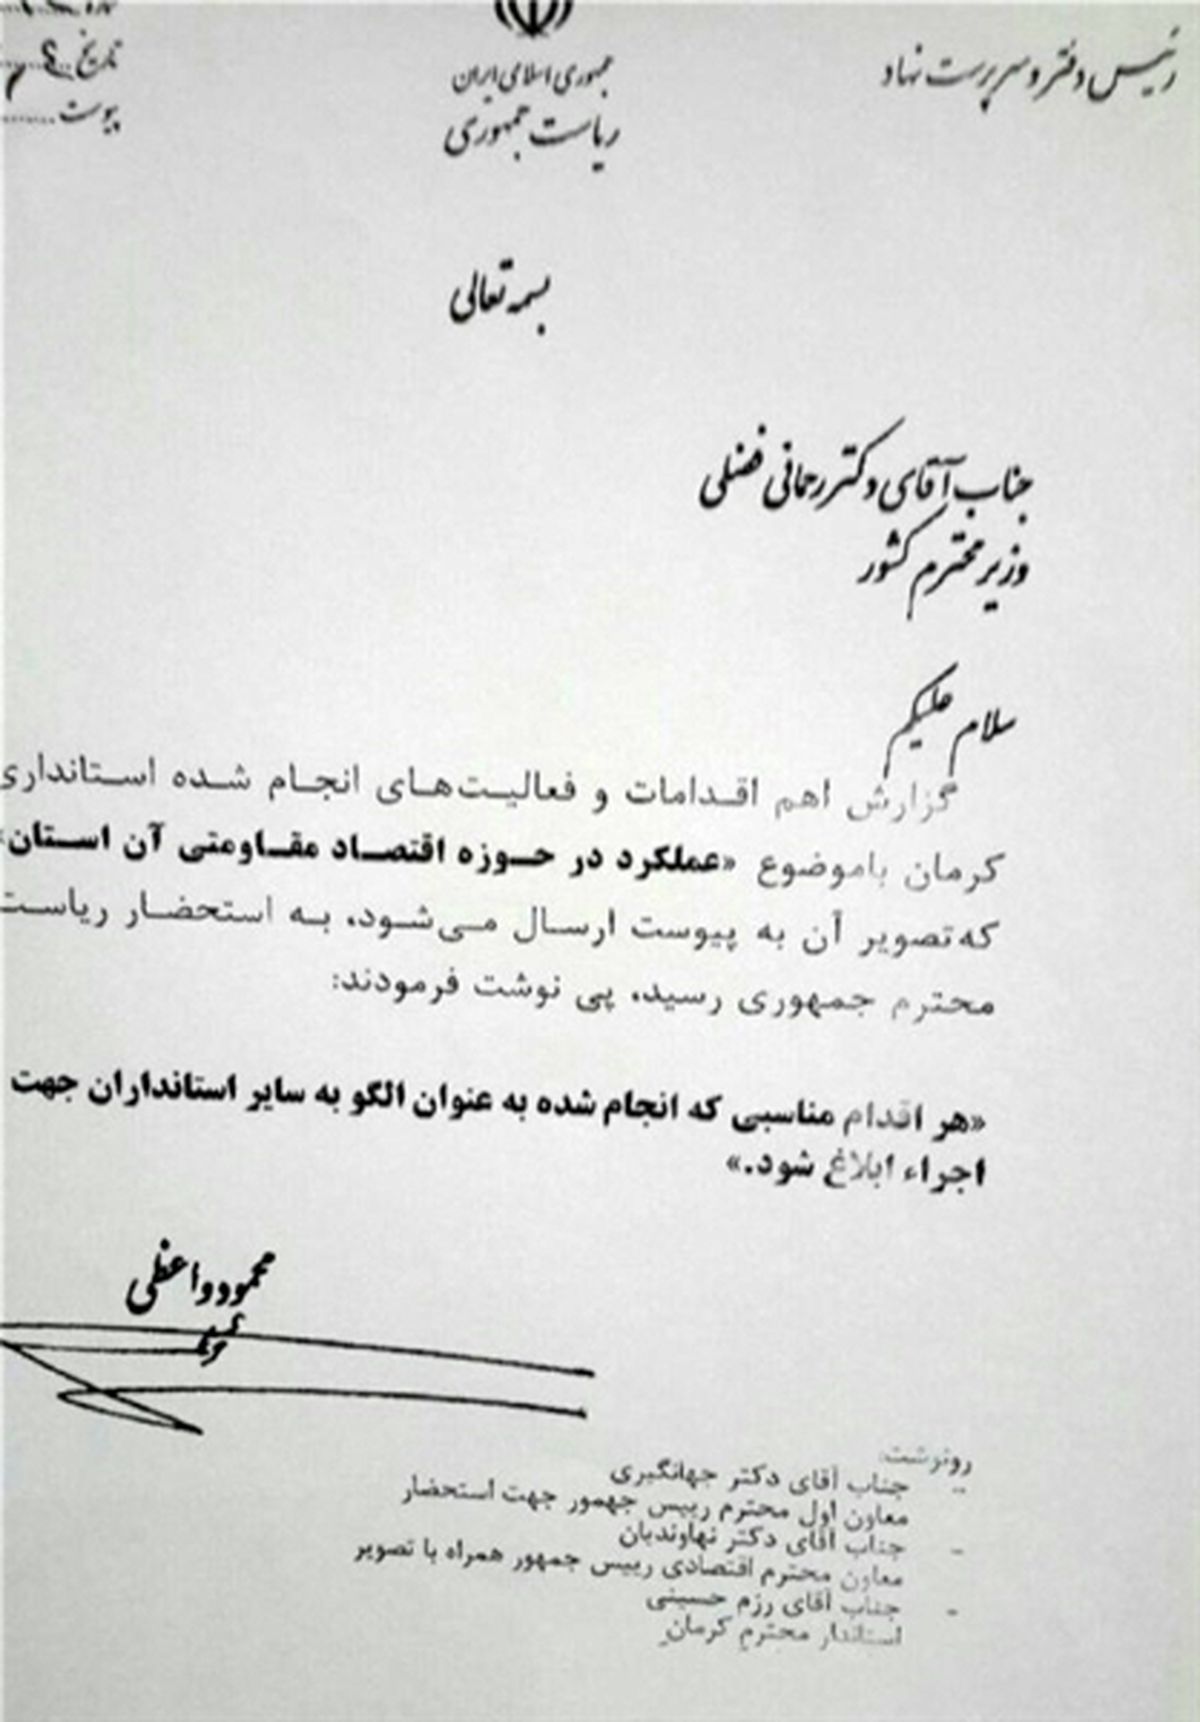 رئیس دفتر و سرپرست نهاد
جمهوری اسلامی ایران
ریاست جمهوری
تاریخ
پیوست
بسمه تعالی
جناب آقای دکتر رحمانی فضلی
وزیر محترم کشور
سلام علیکم
گزارش اهم اقدامات و فعالیت‌های انجام شده استانداری
کرمان باموضوع «عملکرد در حوزه اقتصاد مقاومتی آن استان»
که تصویر آن به پیوست ارسال می‌شود، به استحضار ریاست
محترم جمهوری رسید، پی نوشت فرمودند:
«هر اقدام مناسبی که انجام شده به عنوان الگو به سایر استانداران جهت
اجراء ابلاغ شود.»
محمود واعظی
رونوشت:
- جناب آقای دکتر جهانگیری
معاون اول محترم رییس جهمور جهت استحضار
- جناب آقای دکتر نهاوندیان
معاون محترم اقتصادی رییس جمهور همراه با تصویر
- جناب آقای رزم حسینی
استاندار محترم کرمان